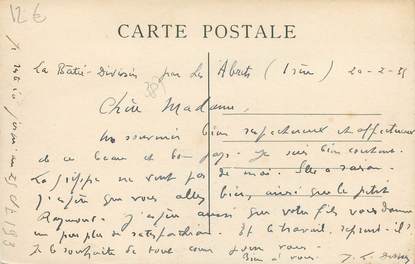 12 €
CARTE POSTALE
La Bâtie-Divisin par Les Abrets (Isère) 20-2-
Chère Madame,
Un souvenir bien respectueux et affectueux
de ce beau et bon pays. Je suis bien contente.
La grippe ne veut pas de moi. Elle a raison.
J'espère que vous allez bien, ainsi que le petit
Raymond. J'espère aussi que votre fils vous donne
un peu plus de satisfaction. Et le travail reprend-il ?
Je le souhaite de tout cœur pour vous.
Bien à vous.